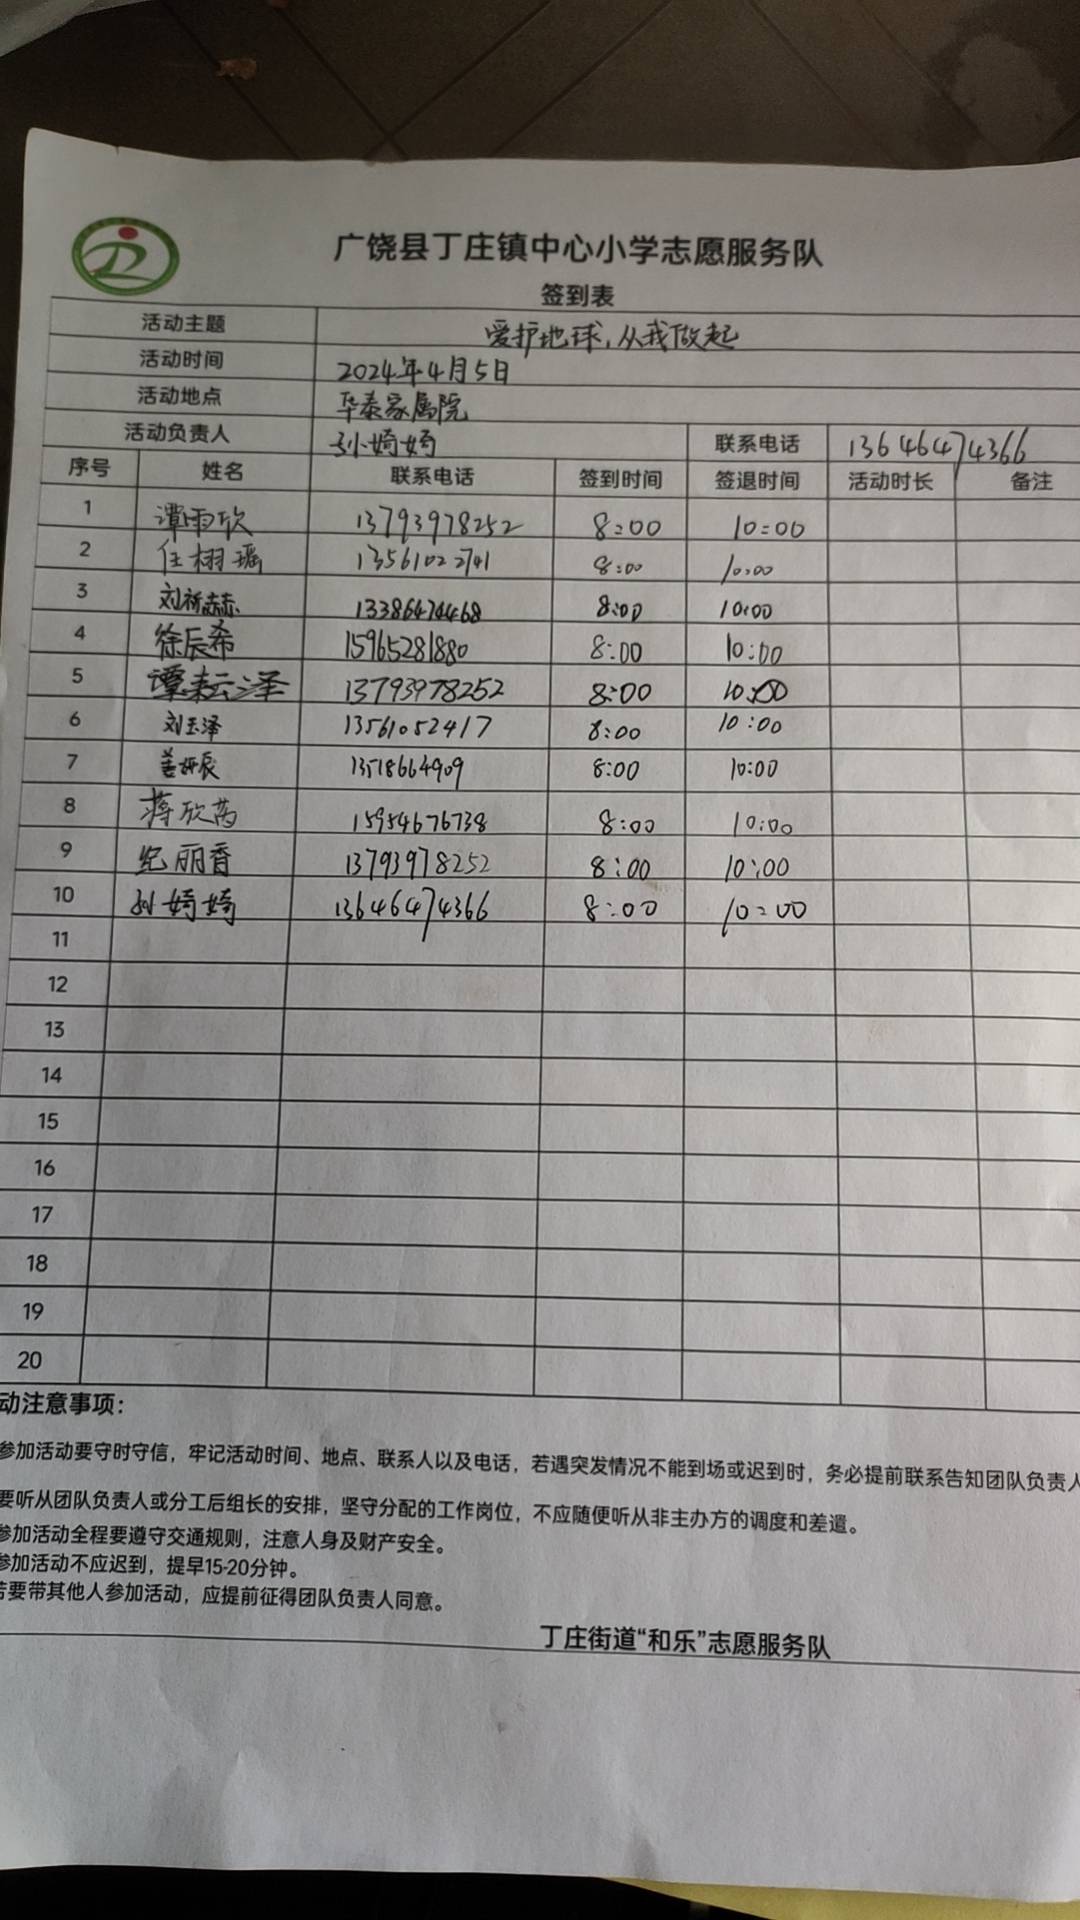 广饶县丁庄镇中心小学志愿服务队
签到表
活动主题 爱护地球,从我做起
活动时间 2024年4月5日
活动地点 华泰家属院
活动负责人 孙婍婍 联系电话 13646474366
序号 姓名 联系电话 签到时间 签退时间 活动时长 备注
1 谭雨欣 13793978252 8:00 10:00
2 任栩瑶 13561022741 8:00 10:00
3 刘祈赫 13386474468 8:00 10:00
4 徐辰希 15965281880 8:00 10:00
5 谭耘泽 13793978252 8:00 10:00
6 刘玉泽 13561052417 8:00 10:00
7 姜妍辰 13518664909 8:00 10:00
8 蒋欣芮 15954676738 8:00 10:00
9 纪丽香 13793978252 8:00 10:00
10 孙婍婍 13646474366 8:00 10:00
11
12
13
14
15
16
17
18
19
20
动注意事项：
参加活动要守时守信，牢记活动时间、地点、联系人以及电话，若遇突发情况不能到场或迟到时，务必提前联系告知团队负责人
要听从团队负责人或分工后组长的安排，坚守分配的工作岗位，不应随便听从非主办方的调度和差遣。
参加活动全程要遵守交通规则，注意人身及财产安全。
参加活动不应迟到，提早15-20分钟。
若要带其他人参加活动，应提前征得团队负责人同意。
丁庄街道“和乐”志愿服务队